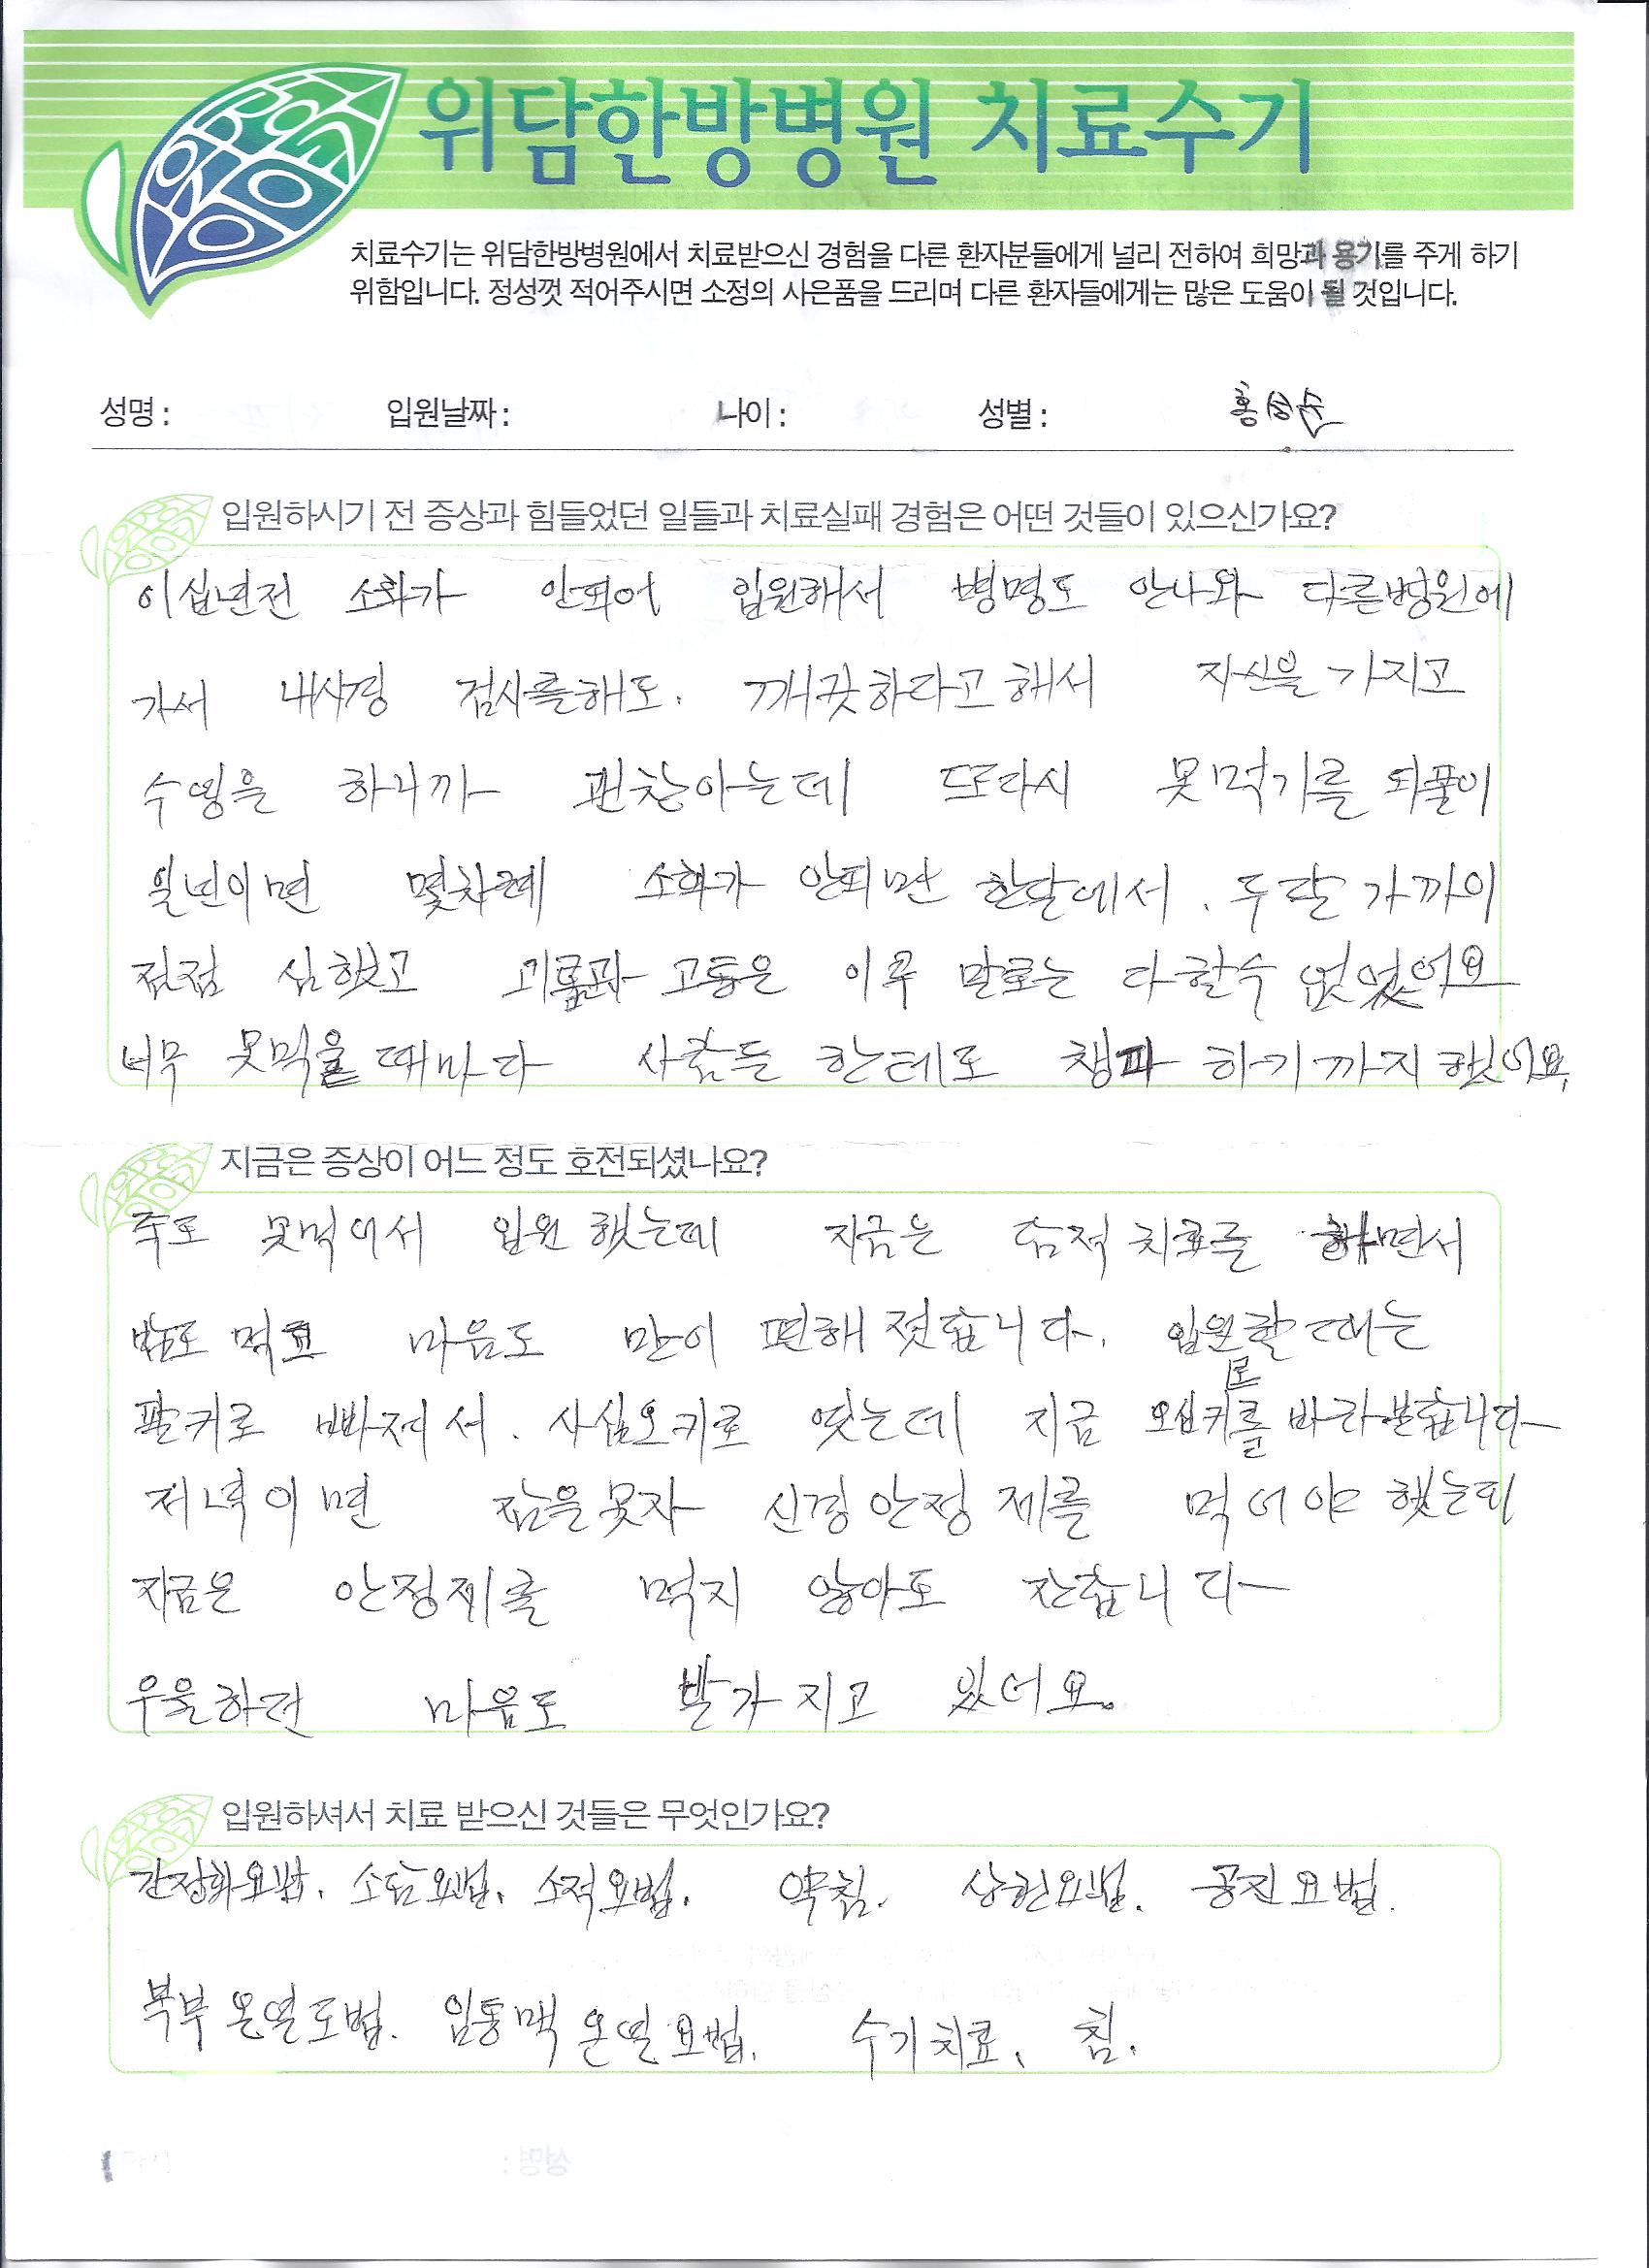 위담한방병원 치료수기
치료수기는 위담한방병원에서 치료받으신 경험을 다른 환자분들에게 널리 전하여 희망과 용기를 주게 하기
위함입니다. 정성껏 적어주시면 소정의 사은품을 드리며 다른 환자들에게는 많은 도움이 될 것입니다.
성명 : 입원날짜 : 나이 : 성별 :
입원하시기 전 증상과 힘들었던 일들과 치료실패 경험은 어떤 것들이 있으신가요?
이십년전 소화가 안되어 입원해서 병명도 안나와 다른병원에
가서 내시경 검사를해도. 깨끗하다고해서 자신을 가지고
수영을 하니까 괜찬아는데 또다시 못먹기를 되풀이
일년이면 몇차례 소화가 안되면 한달에서. 두달 가까이
점점 심했고 괴롭과 고통은 이루 말로는 다할수 없었어요
너무 못먹을때마다 사람들 한테도 챙파 하기까지했어요.
지금은 증상이 어느 정도 호전되셨나요?
죽도 못먹어서 입원했는데 지금은 담적 치료를 하면서
밥도 먹고 마음도 만이 편해젓습니다. 입원할때는
팔키로 빠저서. 사십오키로 엿는데 지금 오십키로를 바라봅니다
저녁이면 잠을못자 신경안정제를 먹어야했는데
지금은 안정제를 먹지 않아도 잠니다
우울하던 마음도 발가지고 있어요.
입원하셔서 치료 받으신 것들은 무엇인가요?
간정화요법. 소담요법. 소적요법. 약침. 상헌요법. 공진요법.
복부온열도법. 임동맥온열요법. 수기치료. 침.